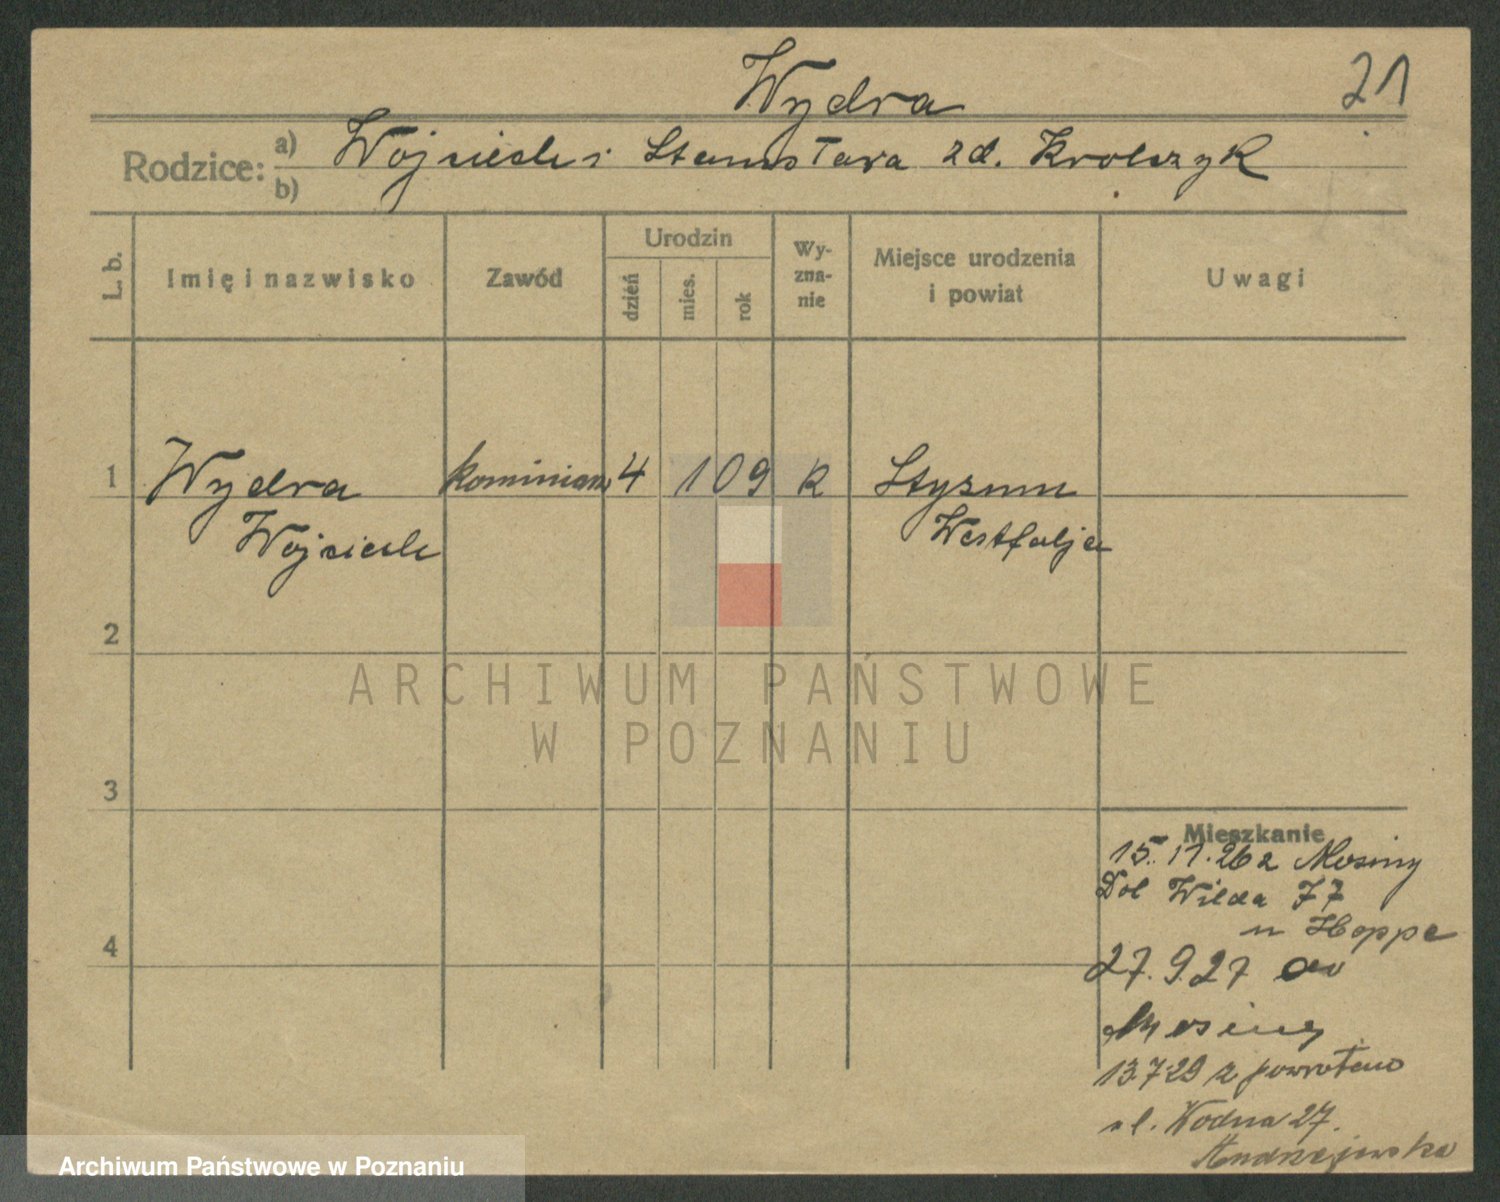 Wydra
21
Rodzice: a) b) Wojciech i Stanisława zd. Krolczyk
L. b.
Imię i nazwisko
Zawód
Urodzin
dzień
mies.
rok
Wy-
zna-
nie
Miejsce urodzenia
i powiat
Uwagi
1 Wydra kominiarz 4 1 09 k Styrum
Wojciech Westfalja
2
3
4
Mieszkanie
15. 11. 26 z Mosiny
Dol Wilda 77
u Hoppe
27. 9. 27 do
Mosiny
13.7.29 z powrotem
ul. Wodna 27.
Andrzejewska
ARCHIWUM PAŃSTWOWE
W POZNANIU
Archiwum Państwowe w Poznaniu